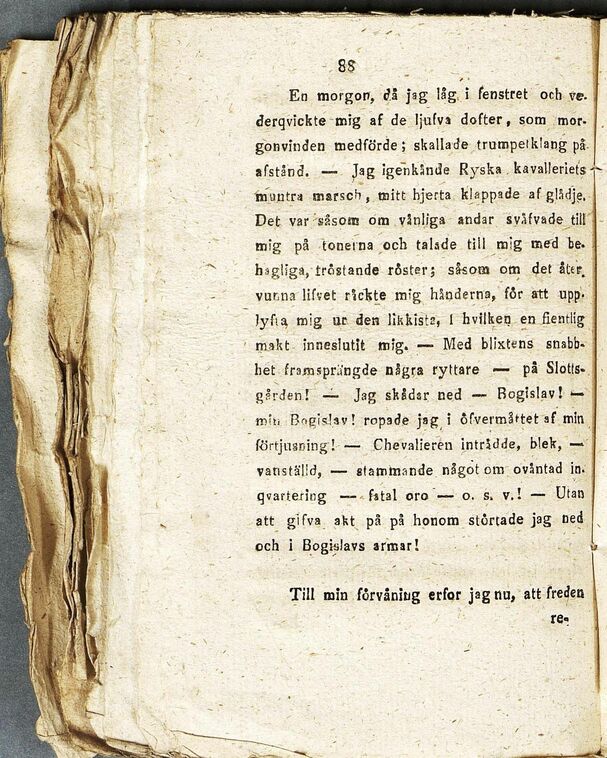 88
En morgon, då jag låg i fenstret och ve-
derqvickte mig af de ljufva dofter, som mor-
gonvinden medförde; skallade trumpetklang på
afstånd. — Jag igenkånde Ryska kavalleriets
muntra marsch, mitt hjerta klappade af glådje.
Det var såsom om vånliga andar svåfvade till
mig på tonerna och talade till mig med be-
hagliga, tröstande röster; såsom om det åter-
vunna lifvet råckte mig hånderna, för att upp-
lyfta mig ur den likkista, i hvilken en fientlig
makt inneslutit mig. — Med blixtens snabb-
het framsprångde några ryttare — på Slotts-
gården! — Jag skådar ned — Bogislav! —
min Bogislav! ropade jag i öfvermåttet af min
förtjusning! — Chevalieren intrådde, blek, —
vanstålld, — stammande något om ovåntad in-
qvartering — fatal oro — o. s. v.! — Utan
att gifva akt på på honom störtade jag ned
och i Bogislavs armar!
Till min förvåning erfor jag nu, att freden
re-